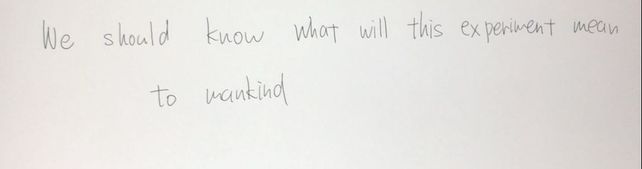 We should know what will this experiment mean
to mankind